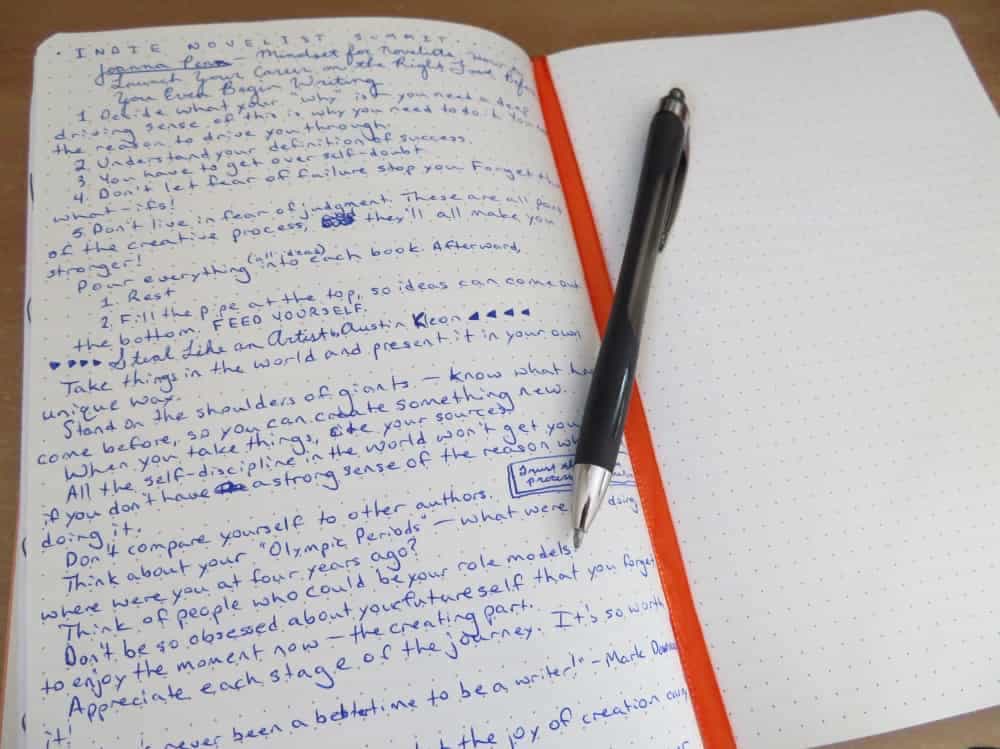 · INDIE NOVELIST SUMMIT
Joanna Penn – Mindset for Novelists, How to
Launch Your Career on the Right Foot Before
You Even Begin Writing
1. Decide what your "why" is – you need a deep
driving sense of this is why you need to do it. You need
the reason to drive you through.
2. Understand your definition of success.
3. You have to get over self-doubt
4. Don't let fear of failure stop you. Forget the
what-ifs!
5. Don't live in fear of judgment. These are all part
of the creative process, they'll all make you
stronger!
Pour everything (all ideas) into each book. Afterward,
1. Rest
2. Fill the pipe at the top, so ideas can come out
the bottom. FEED YOURSELF.
Steal Like an Artist by Austin Kleon
Take things in the world and present it in your own
unique way.
Stand on the shoulders of giants – know what has
come before, so you can create something new.
When you take things, cite your sources.
All the self-discipline in the world won't get you
if you don't have a strong sense of the reason
doing it.
Trust
process
Don't compare yourself to other authors.
Think about your "Olympic Periods" – what were doing
where were you at four years ago?
Think of people who could be your role models.
Don't be so obsessed about your future self that you forget
to enjoy the moment now – the creating part.
Appreciate each stage of the journey. It's so worth
it!
never been a better time to be a writer!" – Mark
the joy of creation